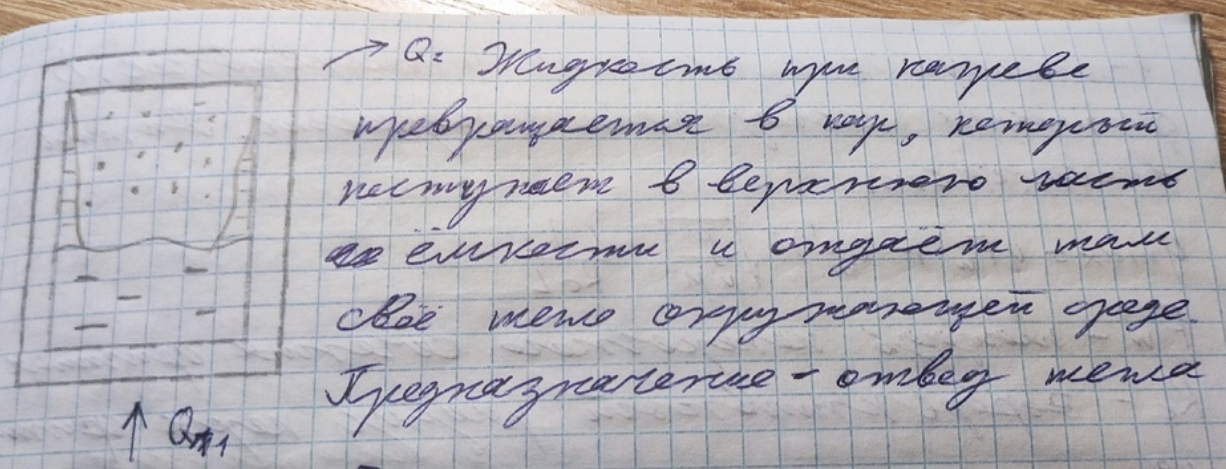 Q2 Жидкость при нагреве
превращается в пар, который
поступает в верхнюю часть
ёмкости и отдаёт там
своё тепло окружающей среде.
Предназначение - отвод тепла
Q1